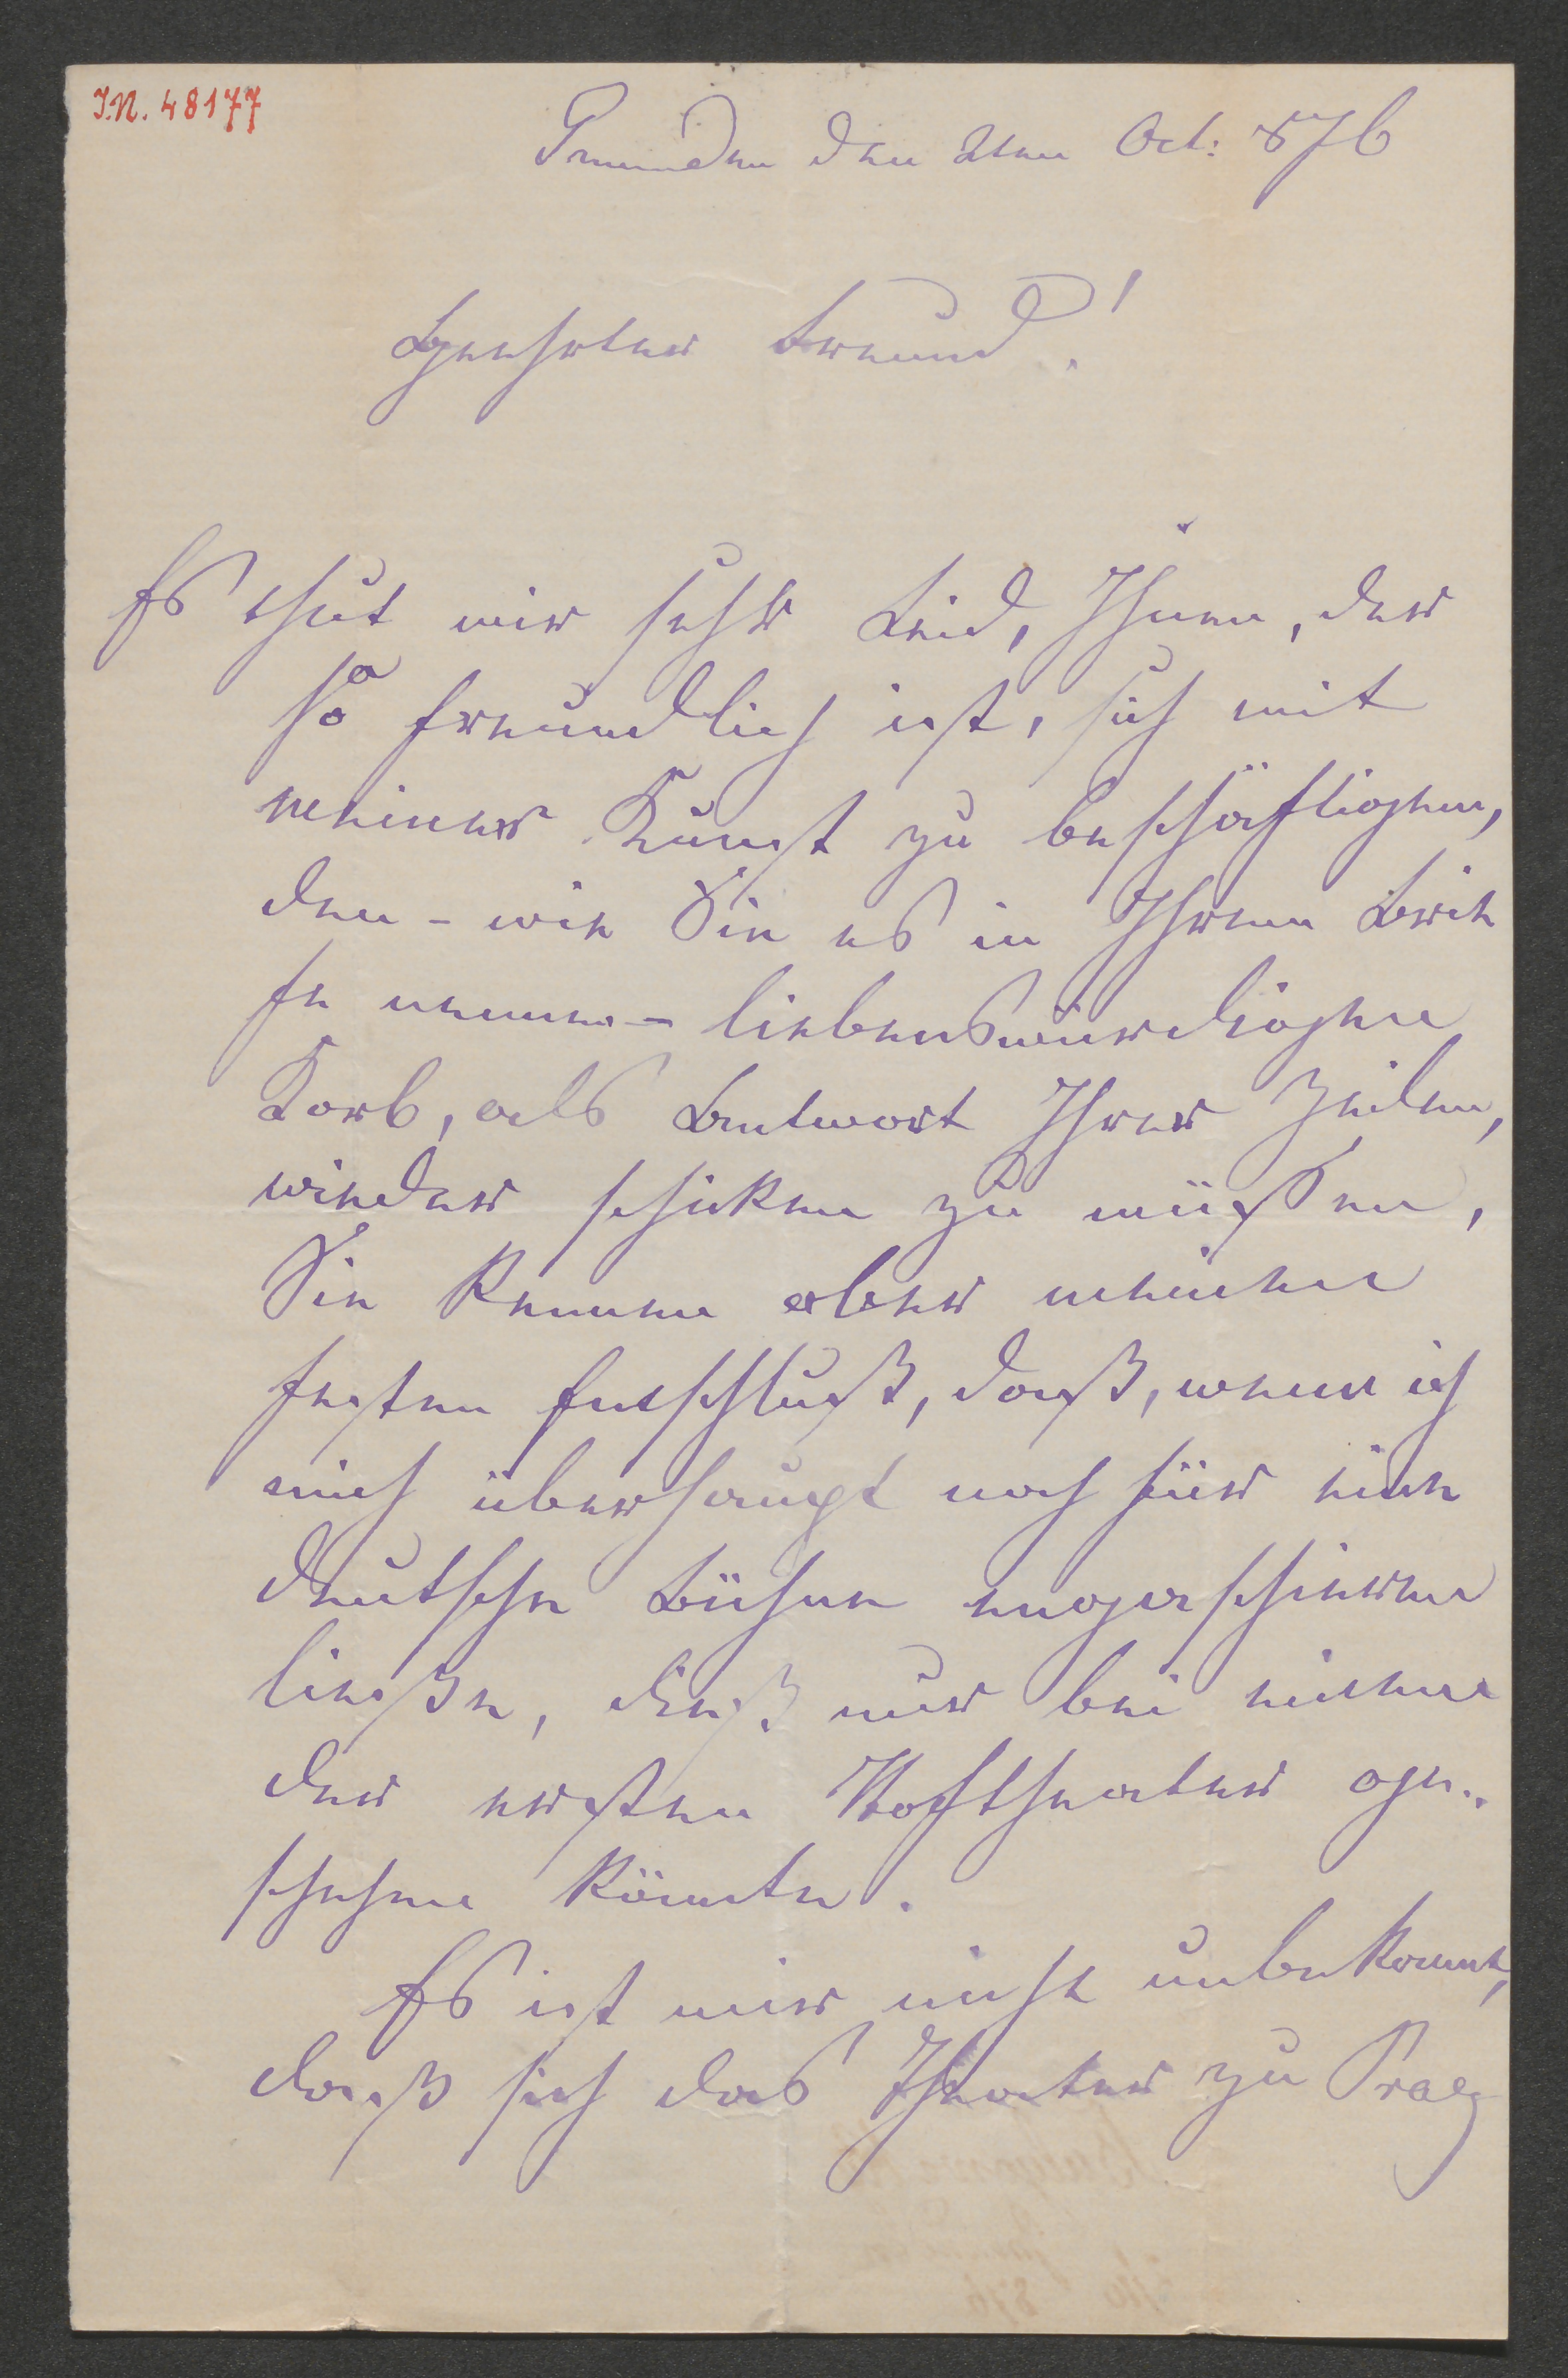 J.N. 48177
Gmunden den 2ten Oct: 876
Geehrter Freund!
Es thut mir sehr Leid, Ihnen, der
so freundlich ist, sich mit
meiner Kunst zu beschäftigen,
den - wie Sie es in Ihrem Brie
fe nennen - liebenswürdigen
Korb, als Antwort Ihrer Zeilen,
wieder schicken zu müßen,
Sie kennen aber meinen
festen Entschluß, daß, wenn ich
mich überhaupt noch für eine
deutsche Bühne engagiren
ließe, dieß nur bei einem
der ersten Hoftheater ge..
schehen könnte.
Es ist mir nicht unbekannt,
daß sich das Theater zu Prag